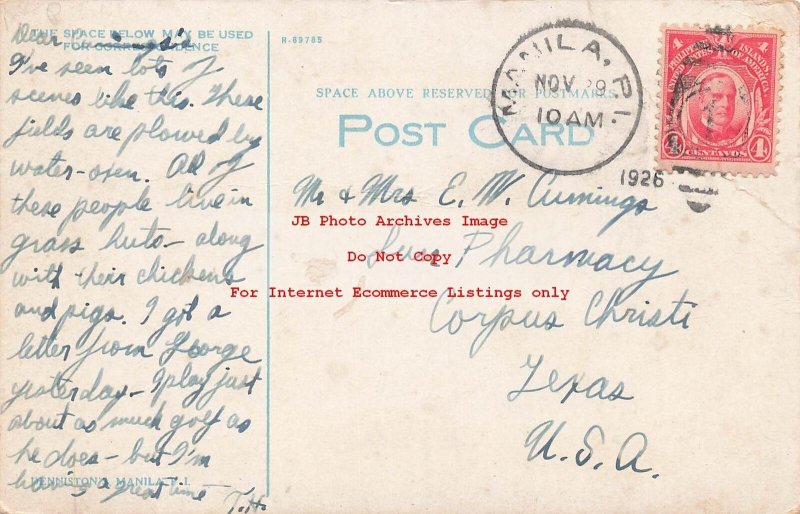 THE SPACE BELOW MAY BE USED
FOR CORRESPONDENCE
Dear
I've seen lots of
scenes like this. These
fields are plowed by
water-oxen. All of
these people live in
grass huts - along
with their chickens
and pigs. I got a
letter from George
yesterday - I play just
about as much golf as
he does - but I'm
having a great time
T.H.
DENNISTON'S, MANILA, P.I.
R-69785
SPACE ABOVE RESERVED FOR POSTMARKS
POST CARD
MANILA, P.I.
NOV 29
10 AM
1926
PHILIPPINE ISLANDS
UNITED STATES OF AMERICA
4 4
4 CENTAVOS 4
Mr & Mrs E. W. Cummings
Pharmacy
Corpus Christi
Texas
U.S.A.
JB Photo Archives Image
Do Not Copy
For Internet Ecommerce Listings only